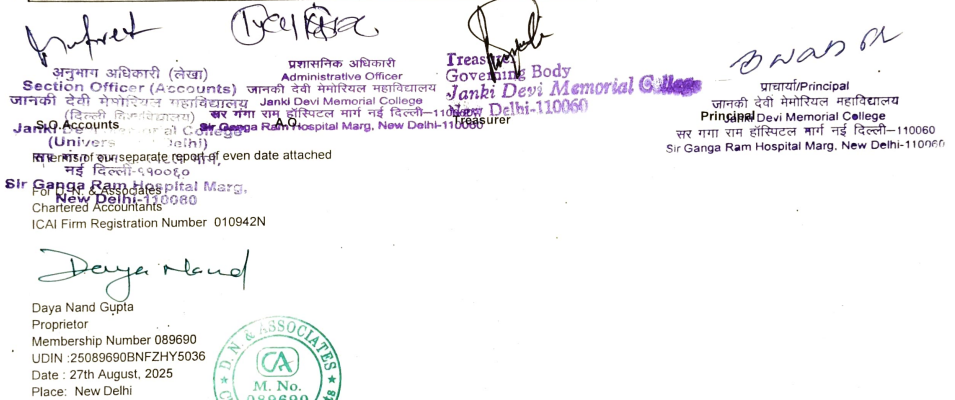 अनुभाग अधिकारी (लेखा)
Section Officer (Accounts)
जानकी देवी मेमोरियल महाविद्यालय
(दिल्ली विश्वविद्यालय)
S.O.Accounts
Janki De al College
(Univers elhi)
सर गंगा राम
नई दिल्ली-११००६०
Sir Ganga Ram Hospital Marg,
New Delhi-110060
प्रशासनिक अधिकारी
Administrative Officer
जानकी देवी मेमोरियल महाविद्यालय
Janki Devi Memorial College
सर गंगा राम हॉस्पिटल मार्ग नई दिल्ली–110060
A.O.
Sir Ganga Ram Hospital Marg, New Delhi-110060
Treasurer
Governing Body
Janki Devi Memorial College
New Delhi-110060
Treasurer
प्राचार्या/Principal
जानकी देवी मेमोरियल महाविद्यालय
Principal
Janki Devi Memorial College
सर गंगा राम हॉस्पिटल मार्ग नई दिल्ली–110060
Sir Ganga Ram Hospital Marg, New Delhi-110060
In terms of our separate report of even date attached
For D. N. & Associates
Chartered Accountants
ICAI Firm Registration Number 010942N
Daya Nand
Daya Nand Gupta
Proprietor
Membership Number 089690
UDIN :25089690BNFZHY5036
Date : 27th August, 2025
Place: New Delhi
D. N. & ASSOCIATES
CA
M. No.
089690